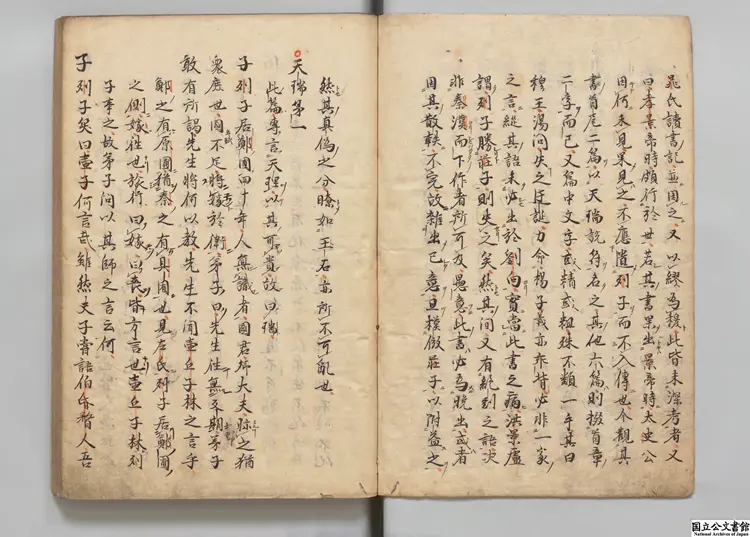 晁氏讀書記並因之又以繆為穆此皆未深考者又
曰孝景帝時頗行於世若其書果出景帝時太史公
因何未見果見之不應遺列子而不入傳也今觀其
書首尾二篇以天瑞說符名之其他六篇則掇首章
二字而已又篇中文字或精或粗殊不類一手其曰
穆王湯問失之迂誕力命楊子或亦乖背必非一家
之言縱其語未必出於劉向實當此書之病洪景盧
謂列子勝莊子則失之矣然其間又有絕到之語決
非秦漢而下作者所可及愚意此書必為晚出或者
因其散軼不完故雜出己意且模倣莊子以附益之
然其真偽之分瞭如玉石所不可亂也
天瑞第一
此篇專言天理以其可貴故曰瑞
子列子居鄭圃四十年人無識者國君卿大夫眎之猶
衆庶也國不足將嫁於衛弟子曰先生往無反期弟子
敢有所謁先生將何以教先生不聞壺丘子林之言乎
鄭之有原圃猶秦之有具圃也見左氏列子居鄭圃
之側嫁往也旅行曰嫁皆方言也壺丘子林列
子事之故弟子問以其師之言云何
子列子笑曰壺子何言哉雖然夫子嘗語伯昏瞀人吾
国立公文書館
National Archives of Japan